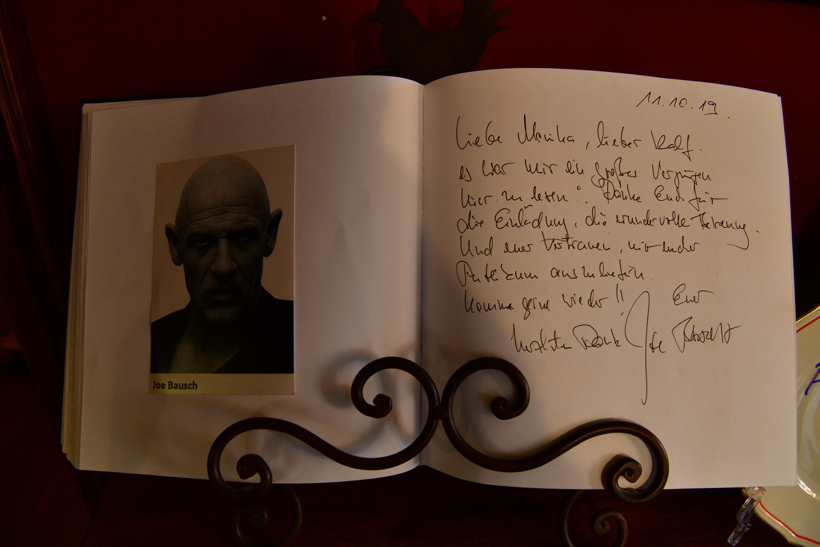 Joe Bausch
11.10.19.
Liebe Monika, lieber Rolf.
es war mir ein großes Vergnügen
hier zu lesen! Danke Euch für
die Einladung, die wundervolle Betreuung.
Und euer Vertrauen, mir
Komme gerne wieder!! Euer
Herzlichen Dank Joe Bausch